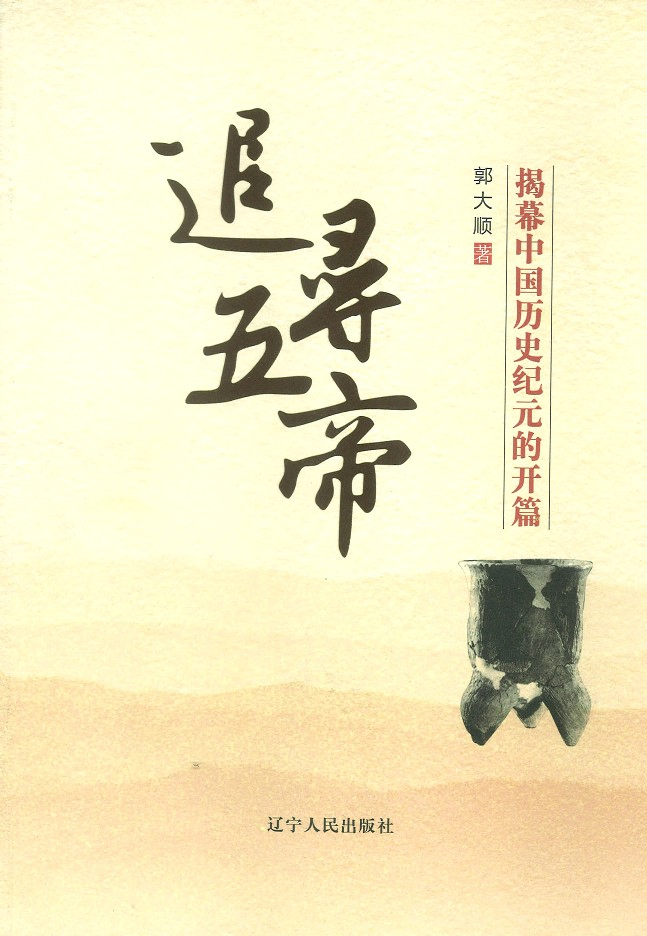 追尋五帝
揭幕中国历史纪元的开篇
郭大顺 著
辽宁人民出版社